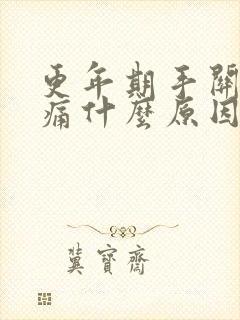 更年期手關
痛什麼原因
冀寶齋